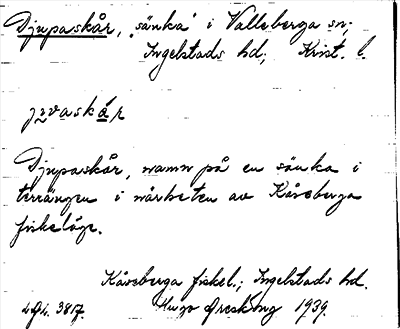 Djupaskår, "sänka" i Valleberga sn;
Ingelstads hd, Krist. l.
Djupaskår, namn på en sänka i
terrängen i närheten av Kåseberga
fiskeläge.
Kåseberga fiskel.; Ingelstads hd.
Hugo Areskoug 1939.